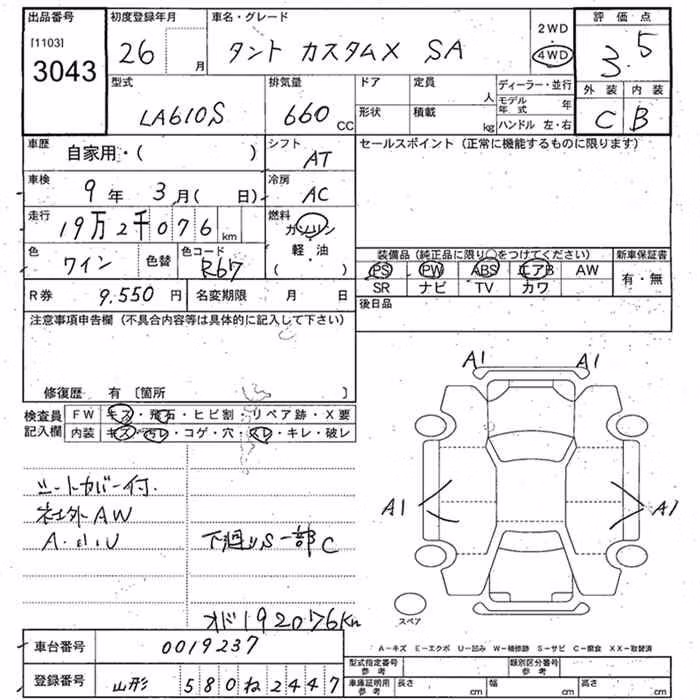 出品番号 初度登録年月 車名・グレード 2WD 評価点
[1103] 3043 26 月 タント カスタムX SA 4WD 3.5
型式 排気量 ドア 定員 人 ディーラー・並行 外装 内装
LA610S 660 CC 形状 積載 kg モデル年式 年 ハンドル 左・右 C B
車歴 自家用・( ) シフト AT セールスポイント (正常に機能するものに限ります)
車検 9年 3月( 日) 冷房 AC
走行 19万2千076km 燃料 ガソリン・軽・油 ( )
色 ワイン 色替 色コード R67
装備品 (純正品に限り○をつけてください) 新車保証書
PS PW ABS エアB AW 有・無
SR ナビ TV カワ
R券 9.550円 名変期限 月 日 後日品
注意事項申告欄 (不具合内容等は具体的に記入して下さい)
修復歴 有 [箇所 ]
検査員記入欄 FW キズ・飛石・ヒビ割・リペア跡・X要
内装 キズ・汚レ・コゲ・穴・スレ・キレ・破レ
A1 A1
シートカバー付.
社外AW
下廻りS一部C
A1 A1
オド192076Km
スペア
A-キズ E-エクボ U-凹み W-補修跡 S-サビ C-腐食 XX-取替済
車台番号 0019237
登録番号 山形 580ね2447
型式指定番号 参考 類別区分番号 参考
車庫証明用 参考 長さ cm 幅 cm 高さ cm